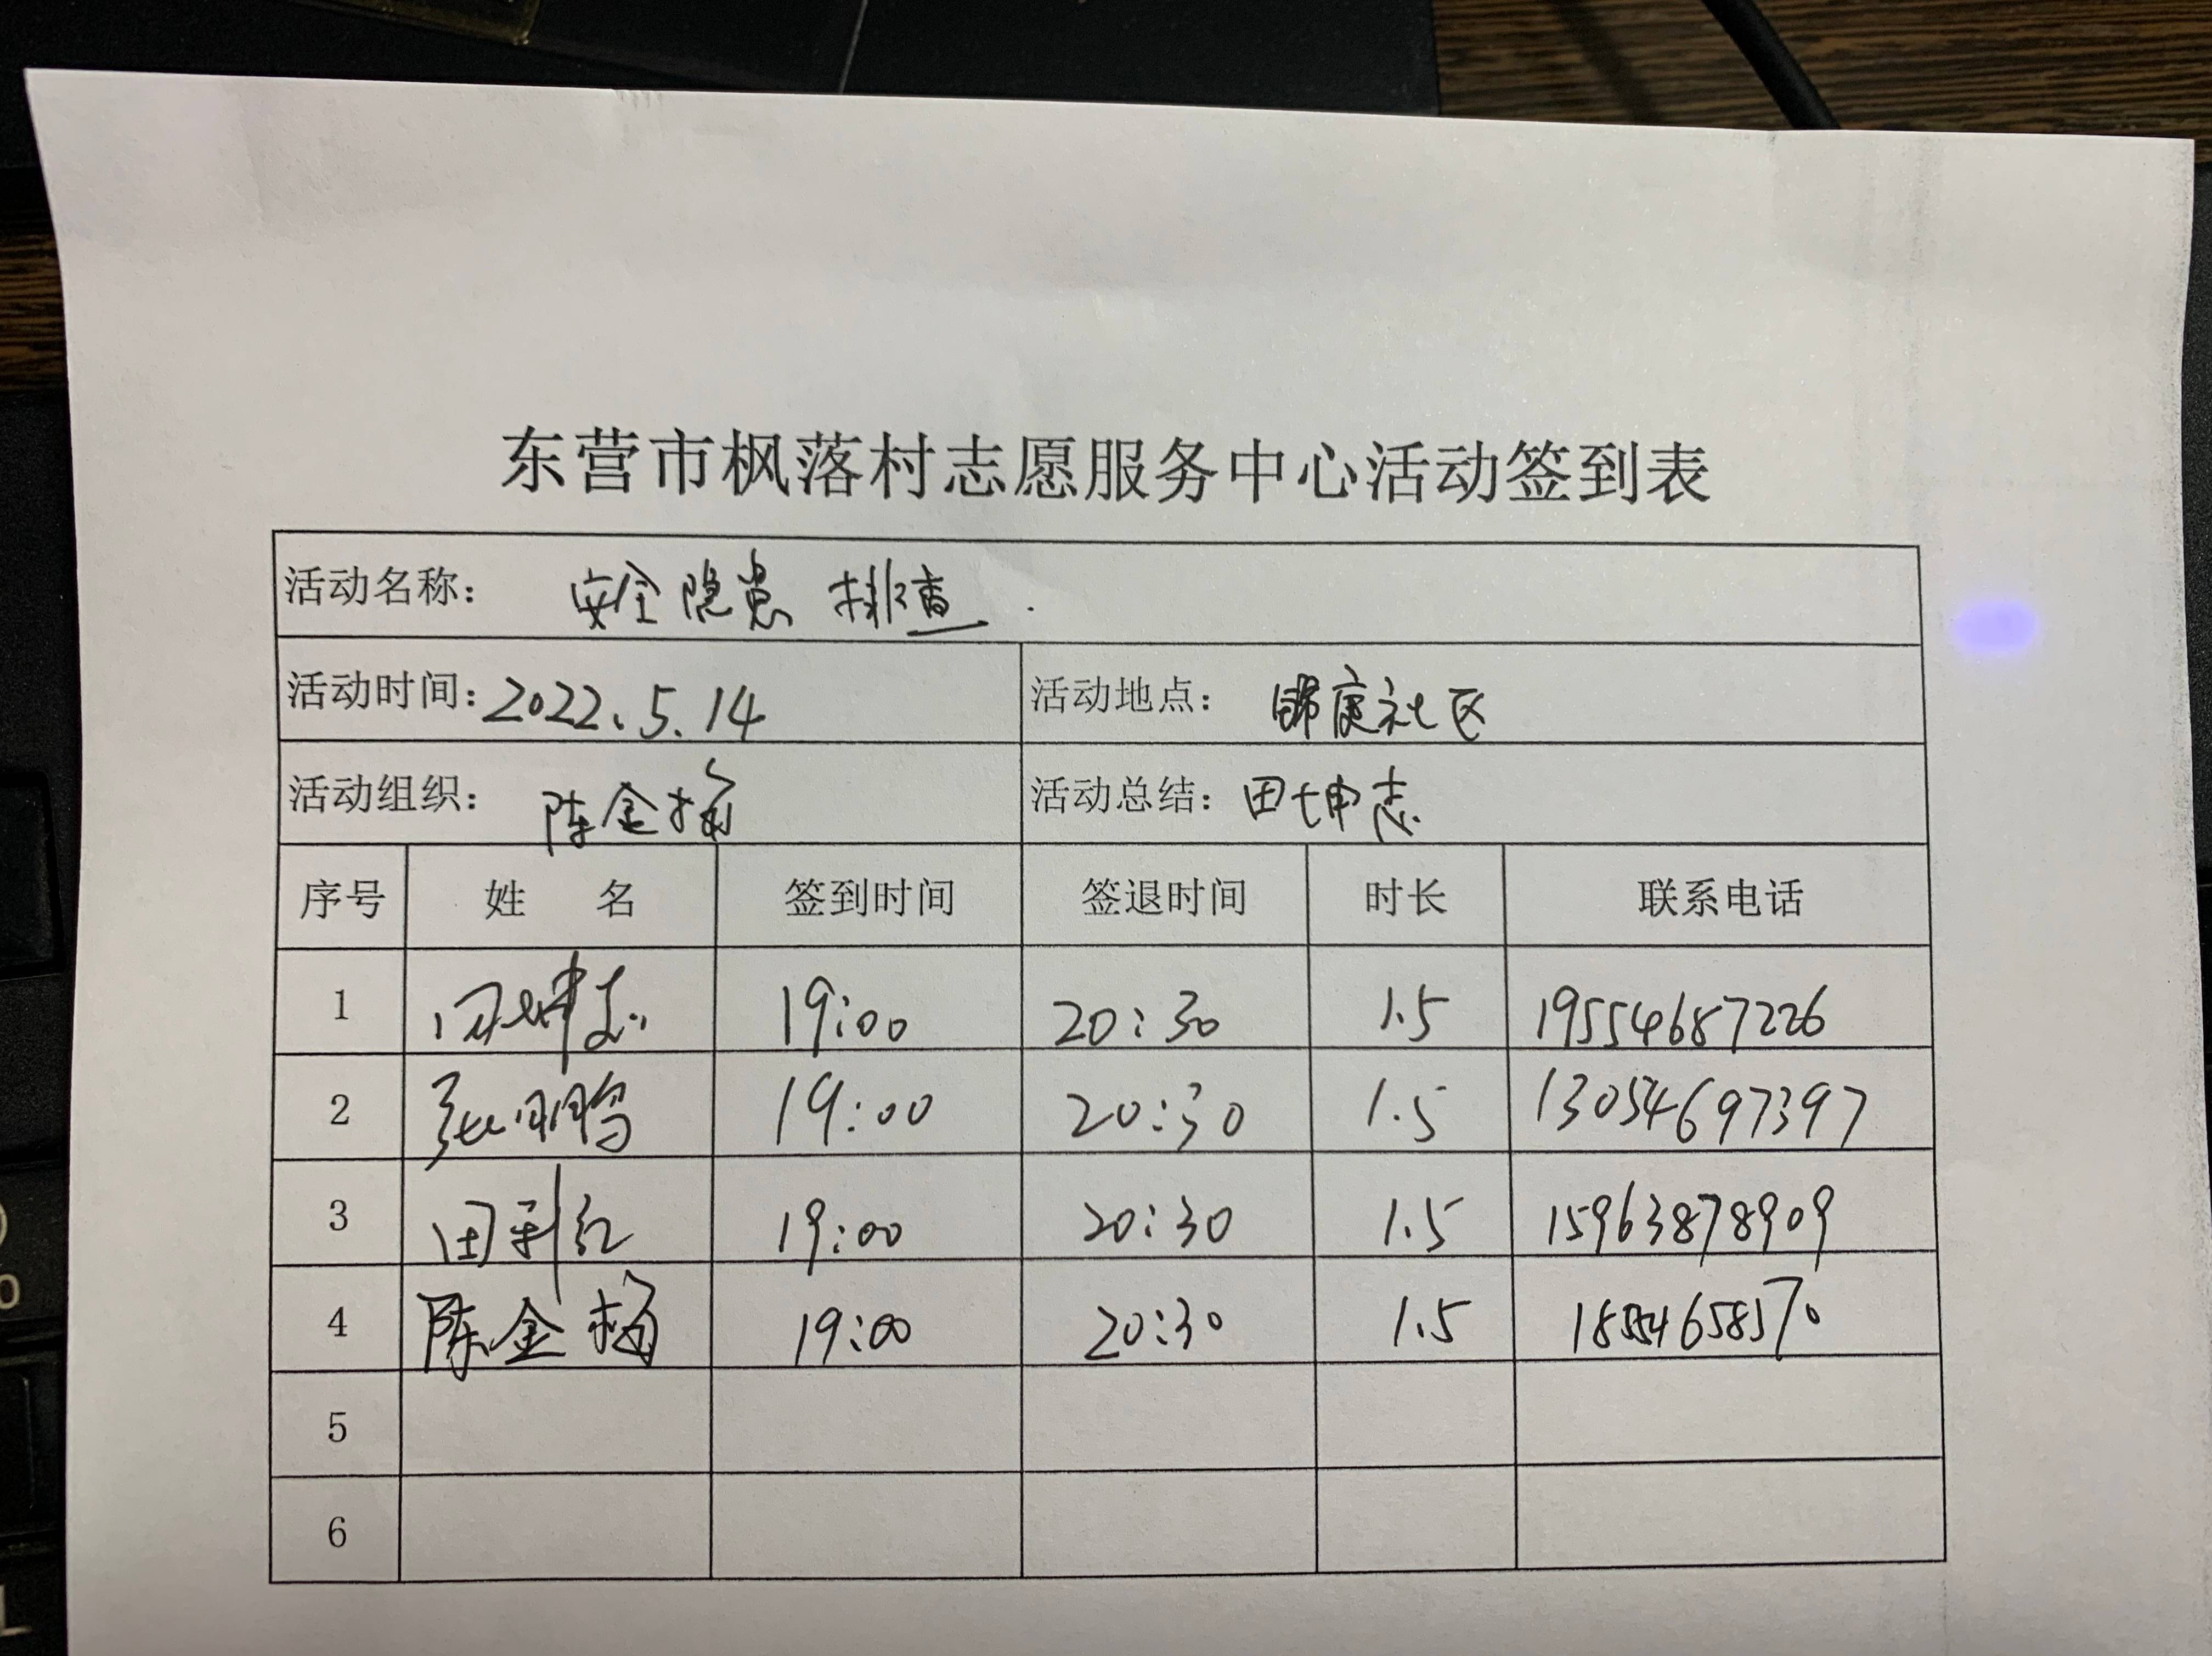 东营市枫落村志愿服务中心活动签到表
活动名称： 安全隐患排查.
活动时间：2022.5.14 活动地点： 锦庭社区
活动组织： 陈金梅 活动总结：田坤志
序号 姓 名 签到时间 签退时间 时长 联系电话
1 田坤志 19:00 20:30 1.5 19554687226
2 张鹏 19:00 20:30 1.5 13054697397
3 田利红 19:00 20:30 1.5 15963878909
4 陈金梅 19:00 20:30 1.5 18554658570
5
6
0
L